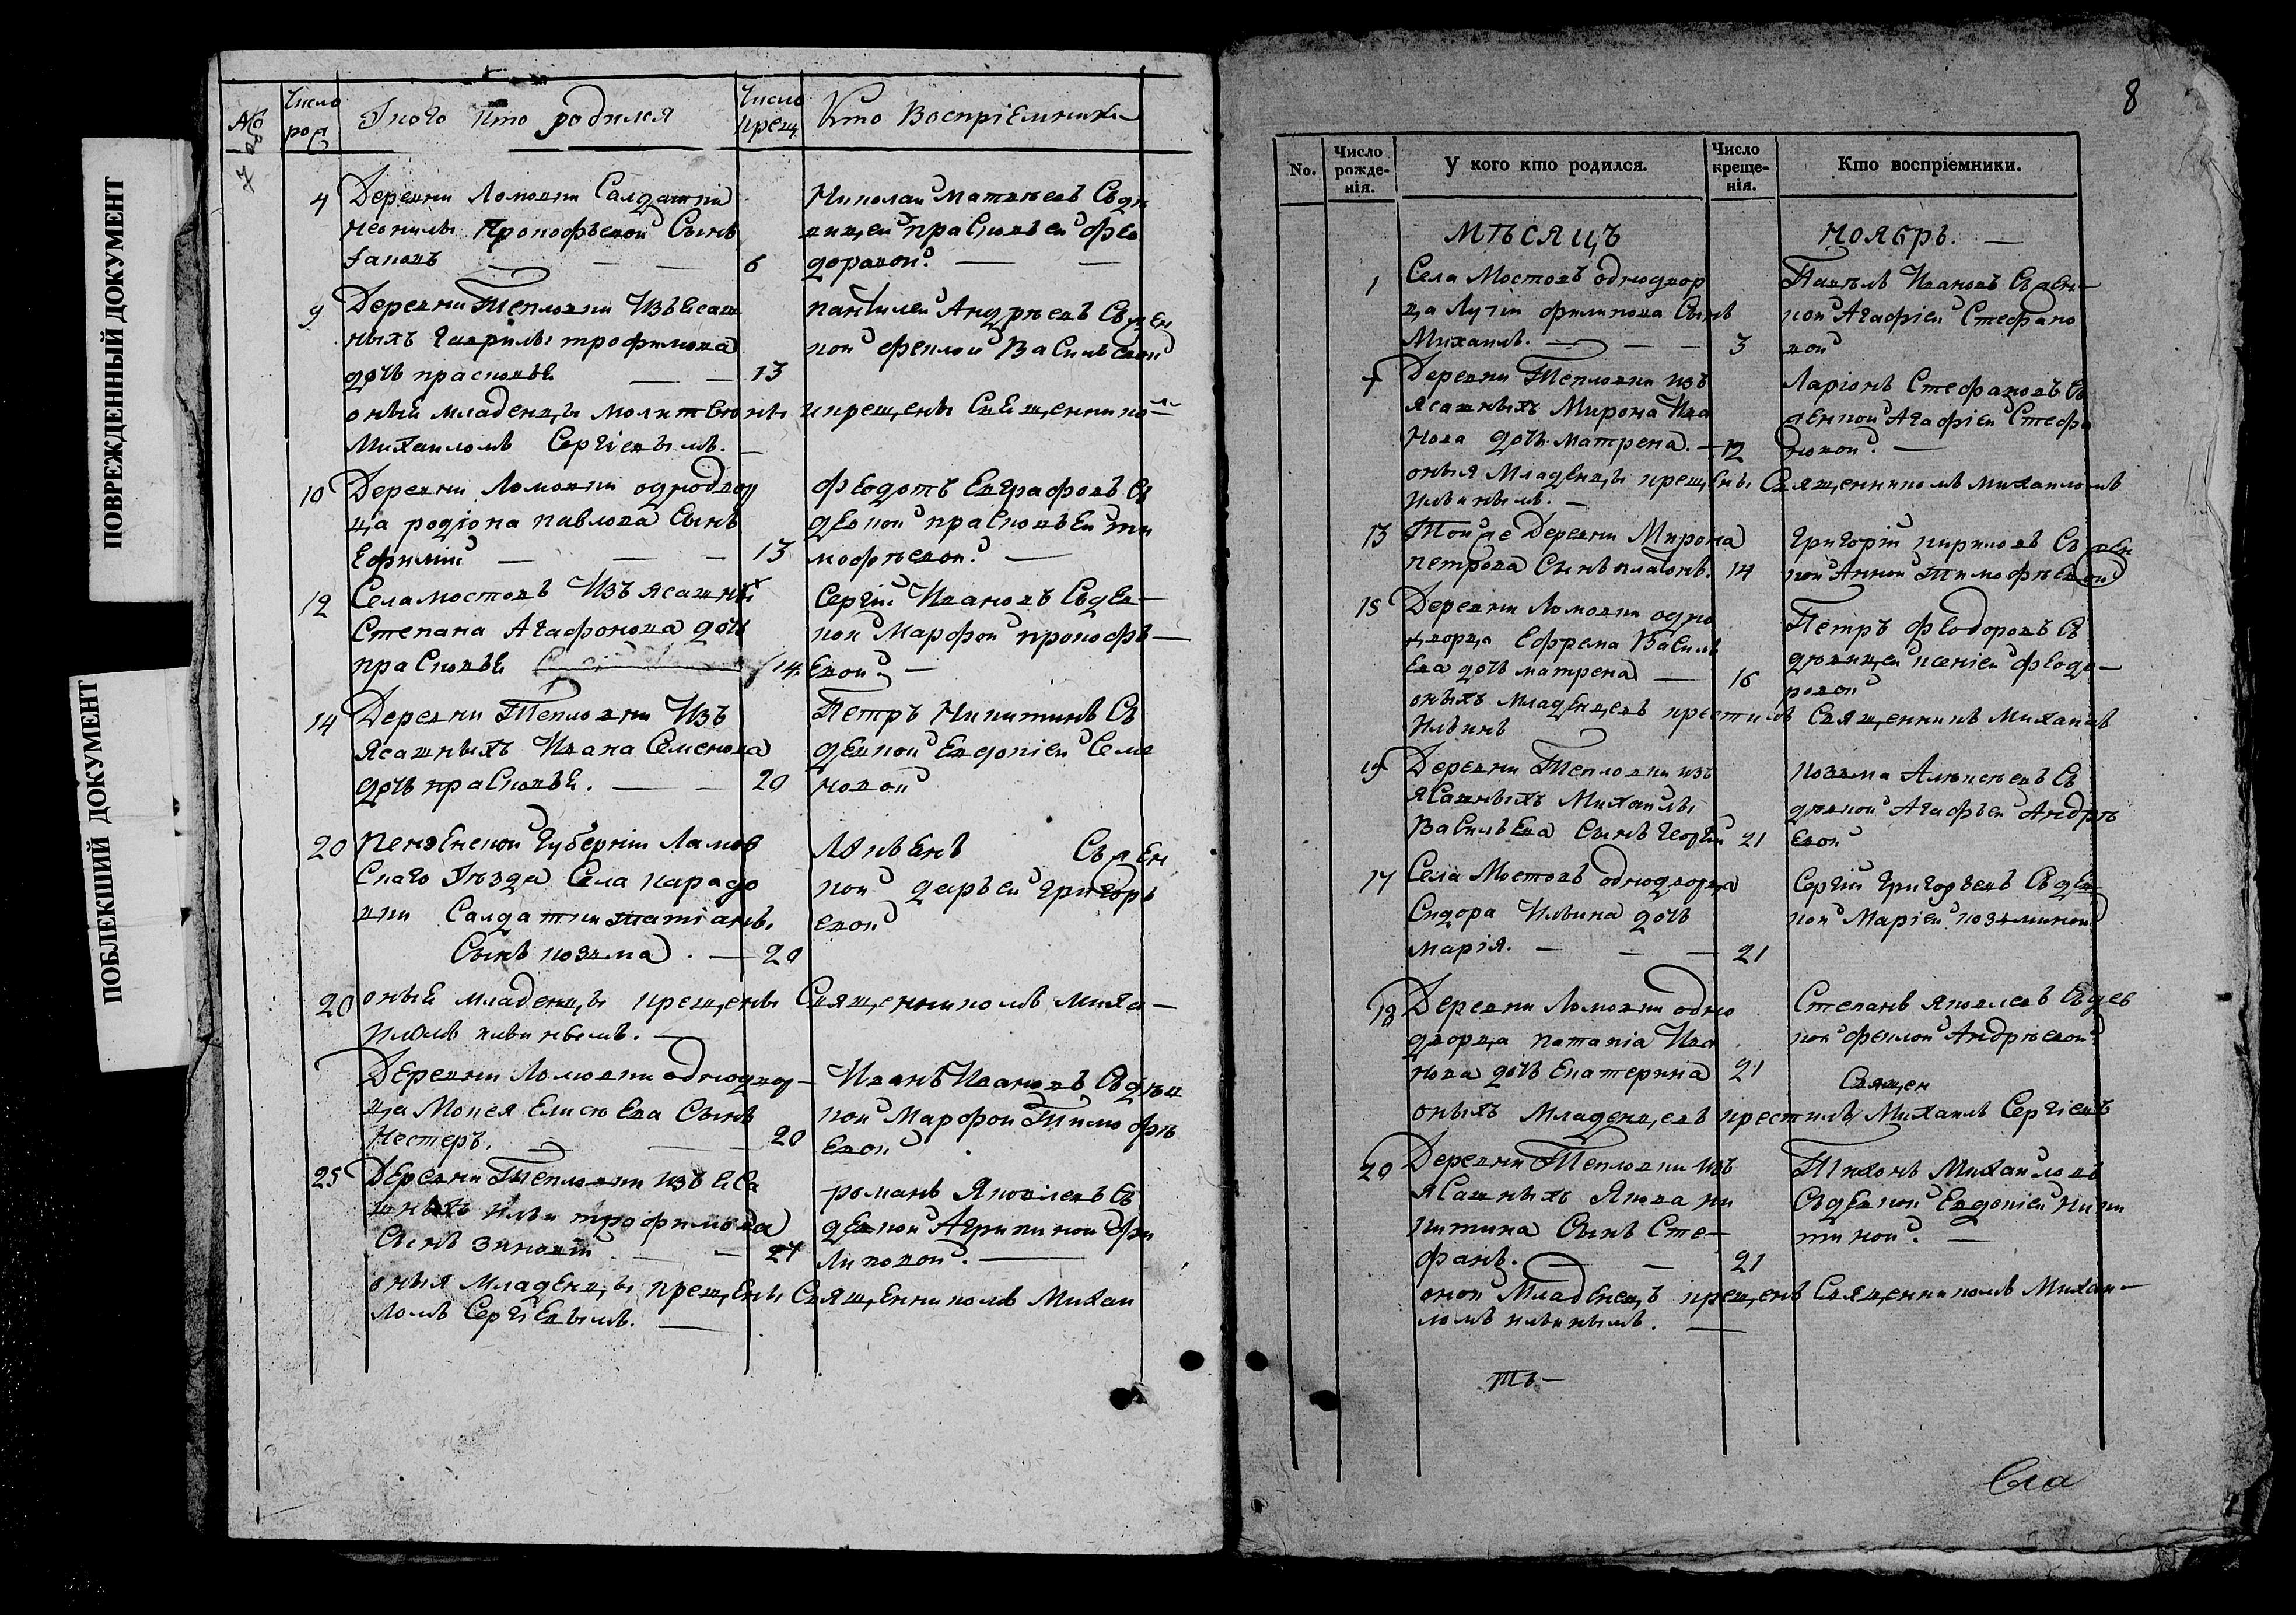 ПОВРЕЖДЕННЫЙ ДОКУМЕНТ
ПОБЛЕКШИЙ ДОКУМЕНТ
Число
рож
Укого кто родился
Число
крещ
Кто воспріемники
4
Деревни Ломовки Салдатки
неонилы Прокофьевой Сынъ
Іаковъ — — — 6
Николаи матвѣевъ Съдѣ
вицеи праСковьеи фео
доровои. — —
9
Деревни Тепловки Изъ есаш
ныхъ гаврилы трофимова
дочь прасковье — — 13
пантилеи Андрѣевъ Съдев
кои феклои ВаСильевои
оныи младенцы молитвены и крещены Священнико
Михаиломъ Сергіевымъ. —
10
Деревни Ломовки однодвор
ца родіона павлова Сынъ
Ефимии — — — 13
Феодотъ Евграфовъ Съ
девкои праСковьеи ти
мофѣевои. —
12
Села мостовъ Изъ ясашны
Степана Агафонова дочь
праСковье 14
Сергіи Ивановъ Съдев—
кои Марфои прокофь—
евои —
14
Деревни Тепловки Изъ
ясашныхъ Ивана Семенова
дочь праСковье. — — 20
Петръ Никитинъ Съ
девкои Евдокіеи Семе
новои
20
Пензенскои Губерніи Ламов
Скаго уѣзда Села карадо
вки Салдатки татіаны
Сынъ козма. — 20
Съдев
кои дарьеи григорь
евои
20
оныи младенцы крещены Священникомъ миха—
иломъ ильинымъ. —
Деревни Ломовки однодвор—
ца Мокея Елисеева Сынъ
Нестеръ. — — 20
Иванъ Ивановъ Съдѣв
кои Марфои Тимофѣ
евои
25
Деревни Тепловки изъ еса
шныхъ ильи трофимова
Сынъ зиновіи — — 27
романъ Яковлевъ Съ
девкои Агрипинои фи
липовои. —
оныя младенцы крещены Священникомъ Михаи
ломъ Сергіевымъ. —
8
No.
Число
рожде-
нія.
У кого кто родился.
Число
креще-
нія.
Кто воспріемники.
мѣсяцъ
ноябрь. —
1
Села Мостовъ однодвор
ца Лукіи филипова Сынъ
Михаилъ. — — — 3
Павелъ Ивановъ Съдев—
кои Агафіеи Стефано
вои
7
Деревни Тепловки изъ
ясашныхъ Мирона Ива
нова дочь матрена. — 12
Ларіонъ Стефановъ Съ
девкои Агафіеи Стефа
новои. —
оныя Младенцы крещены Священникомъ михаиломъ
ильинымъ. —
13
Тои же Деревни Мирона
петрова Сынъ платонъ. 14
Григоріи кириловъ Съдев
кои Аннои Тимофѣевои
15
Деревни Ломовки одно
дворца Ефрема Василь
ева дочь матрена — 16
Петръ феодоровъ Съ
дѣвицеи ксеніеи феодо—
ровои
оныхъ младенцевъ крестилъ Священникъ Михаилъ
Ильинъ
19
Деревни Тепловки изъ
яСашныхъ Михаилы
ВаСильева Сынъ георгіи 21
козма Алексеевъ Съ
дѣвкои Агафьеи Андрѣ
евои
17
Села Мостовъ однодворца
Сидора Ильина дочь
марія. — — — 21
Сергіи григорьевъ Съдев
кои Маріеи козминои
18
Деревни Ломовки одно
дворца патапія Ива
нова дочь Екатерина 21
Степанъ яковлевъ Съдев
кои феклои Андрѣевои
Священ
оныхъ младенцевъ крестилъ Михаилъ Сергіевъ
20
Деревни Тепловки изъ
яСашныхъ Якова ни
китина Сынъ Сте—
фанъ. — — 21
Тихонъ Михаиловъ
Съдевкои Евдокіеи ники
тинои. —
онои Младенецъ крещенъ Священникомъ Михаи—
ломъ ильинымъ. —